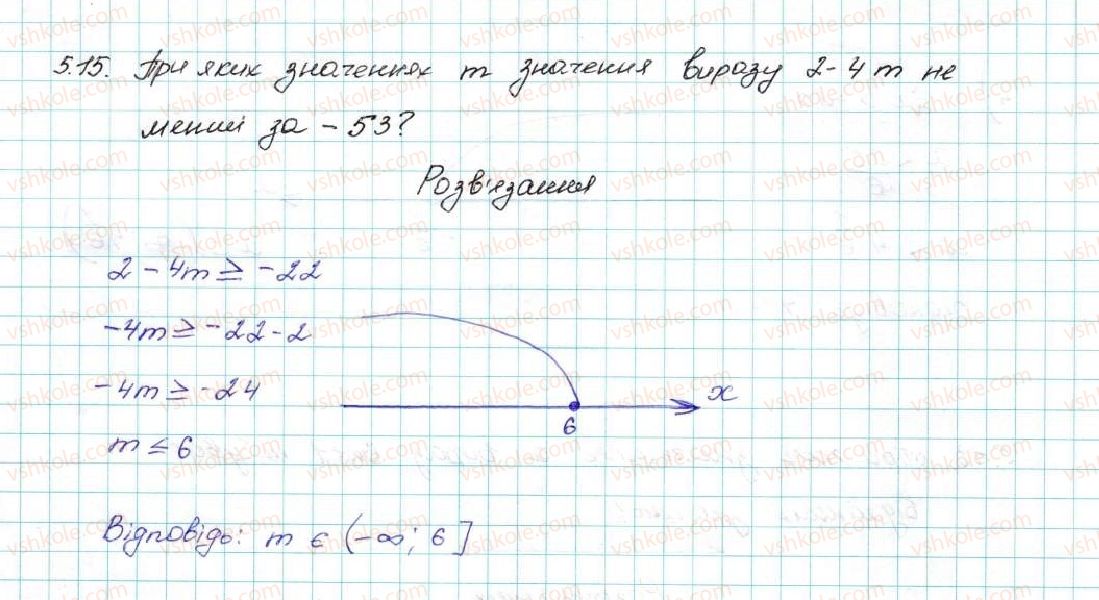 5.15. При яких значеннях m значення виразу 2-4m не
менші за -53?
Розв'язання
2 - 4m ≥ -22
-4m ≥ -22-2
-4m ≥ -24
m ≤ 6
x
6
Відповідь: m ∈ (-∞; 6]